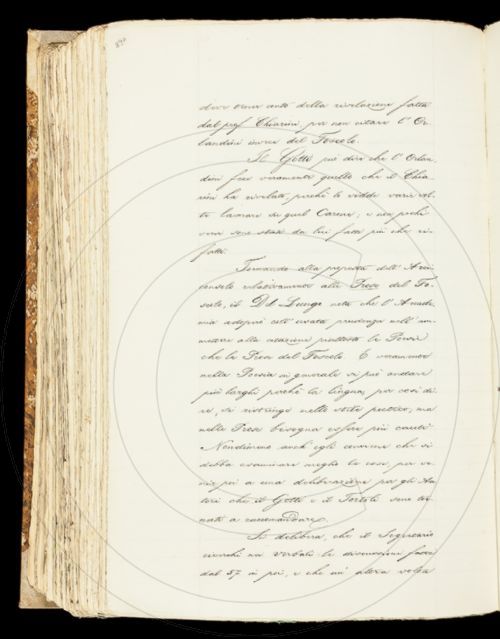 deve tener conto della rivelazione fatta
dal prof. Chiarini, per non citare l'Or-
landini invece del Foscolo.
Il Gotti può dire che l'Orlan-
dini fece veramente quello che il Chia-
rini ha rivelato, perchè lo vidde varie vol-
te lavorare su quel Carme; e non pochi
versi sono stati da lui fatti più che ri-
fatti.
Tornando alla proposta dell' Arci-
consolo relativamente alle Prose del Fo-
scolo, il Del Lungo nota che l' Accade-
mia adoprò certi usata prudenza nell' am-
mettere alla citazione piuttosto le Poesie
che le Prose del Foscolo. E veramente
nella Poesia in generale si può andare
più larghi perchè la lingua, per così di-
re, si restringe nello stile poetico; ma
nelle Prose bisogna essere più cauti.
Nondimeno anch' egli conviene che si
debba esaminare meglio la cosa per ve-
nir poi a una deliberazione per gli Au-
tori che il Gotti e il Tortoli sono tor-
nati a raccomandare.
Si delibera, che il Segretario
ricerchi nei Verbali le discussioni fatte
dal 57 in poi, e che un' altra volta